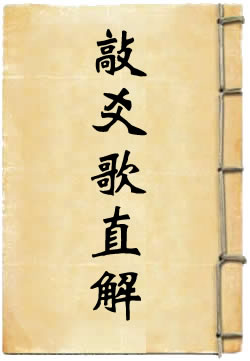 敲爻歌直解